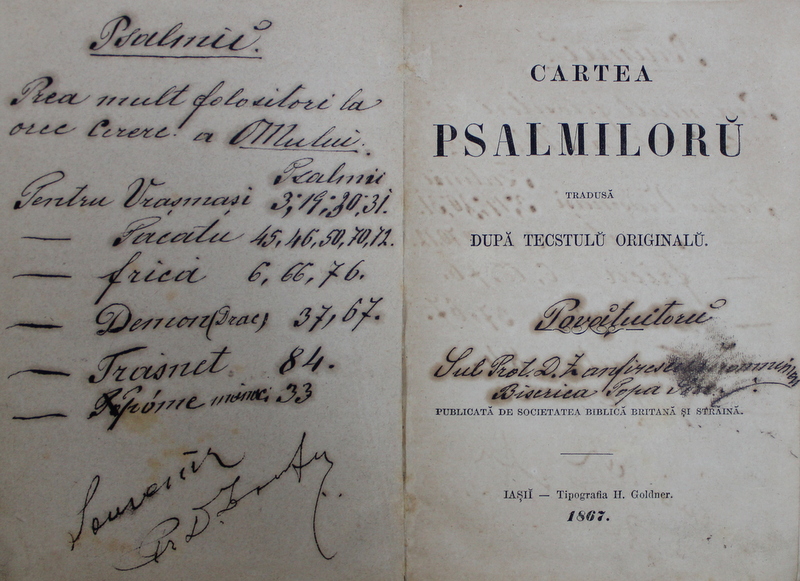 Psalmii.
Prea mult folositori la
orce Cerere a OMului.
Psalmii
Pentru Vrașmași 3, 19, 30, 31.
— Păcatu 45, 46, 50, 70, 72.
— frică 6, 66, 76.
— Demon (Drac) 37, 67.
— Trăsnet 84.
— 33
Souvenir
Pr. D.
CARTEA
PSALMILORŬ
TRADUSĂ
DUPĂ TECSTULŬ ORIGINALŬ.
Povățuitoru
Prot. D. Zanfirescu
Biserica Popa
PUBLICATĂ DE SOCIETATEA BIBLICĂ BRITANĂ ȘI STRĂINĂ.
IAȘIĬ — Tipografia H. Goldner.
1867.